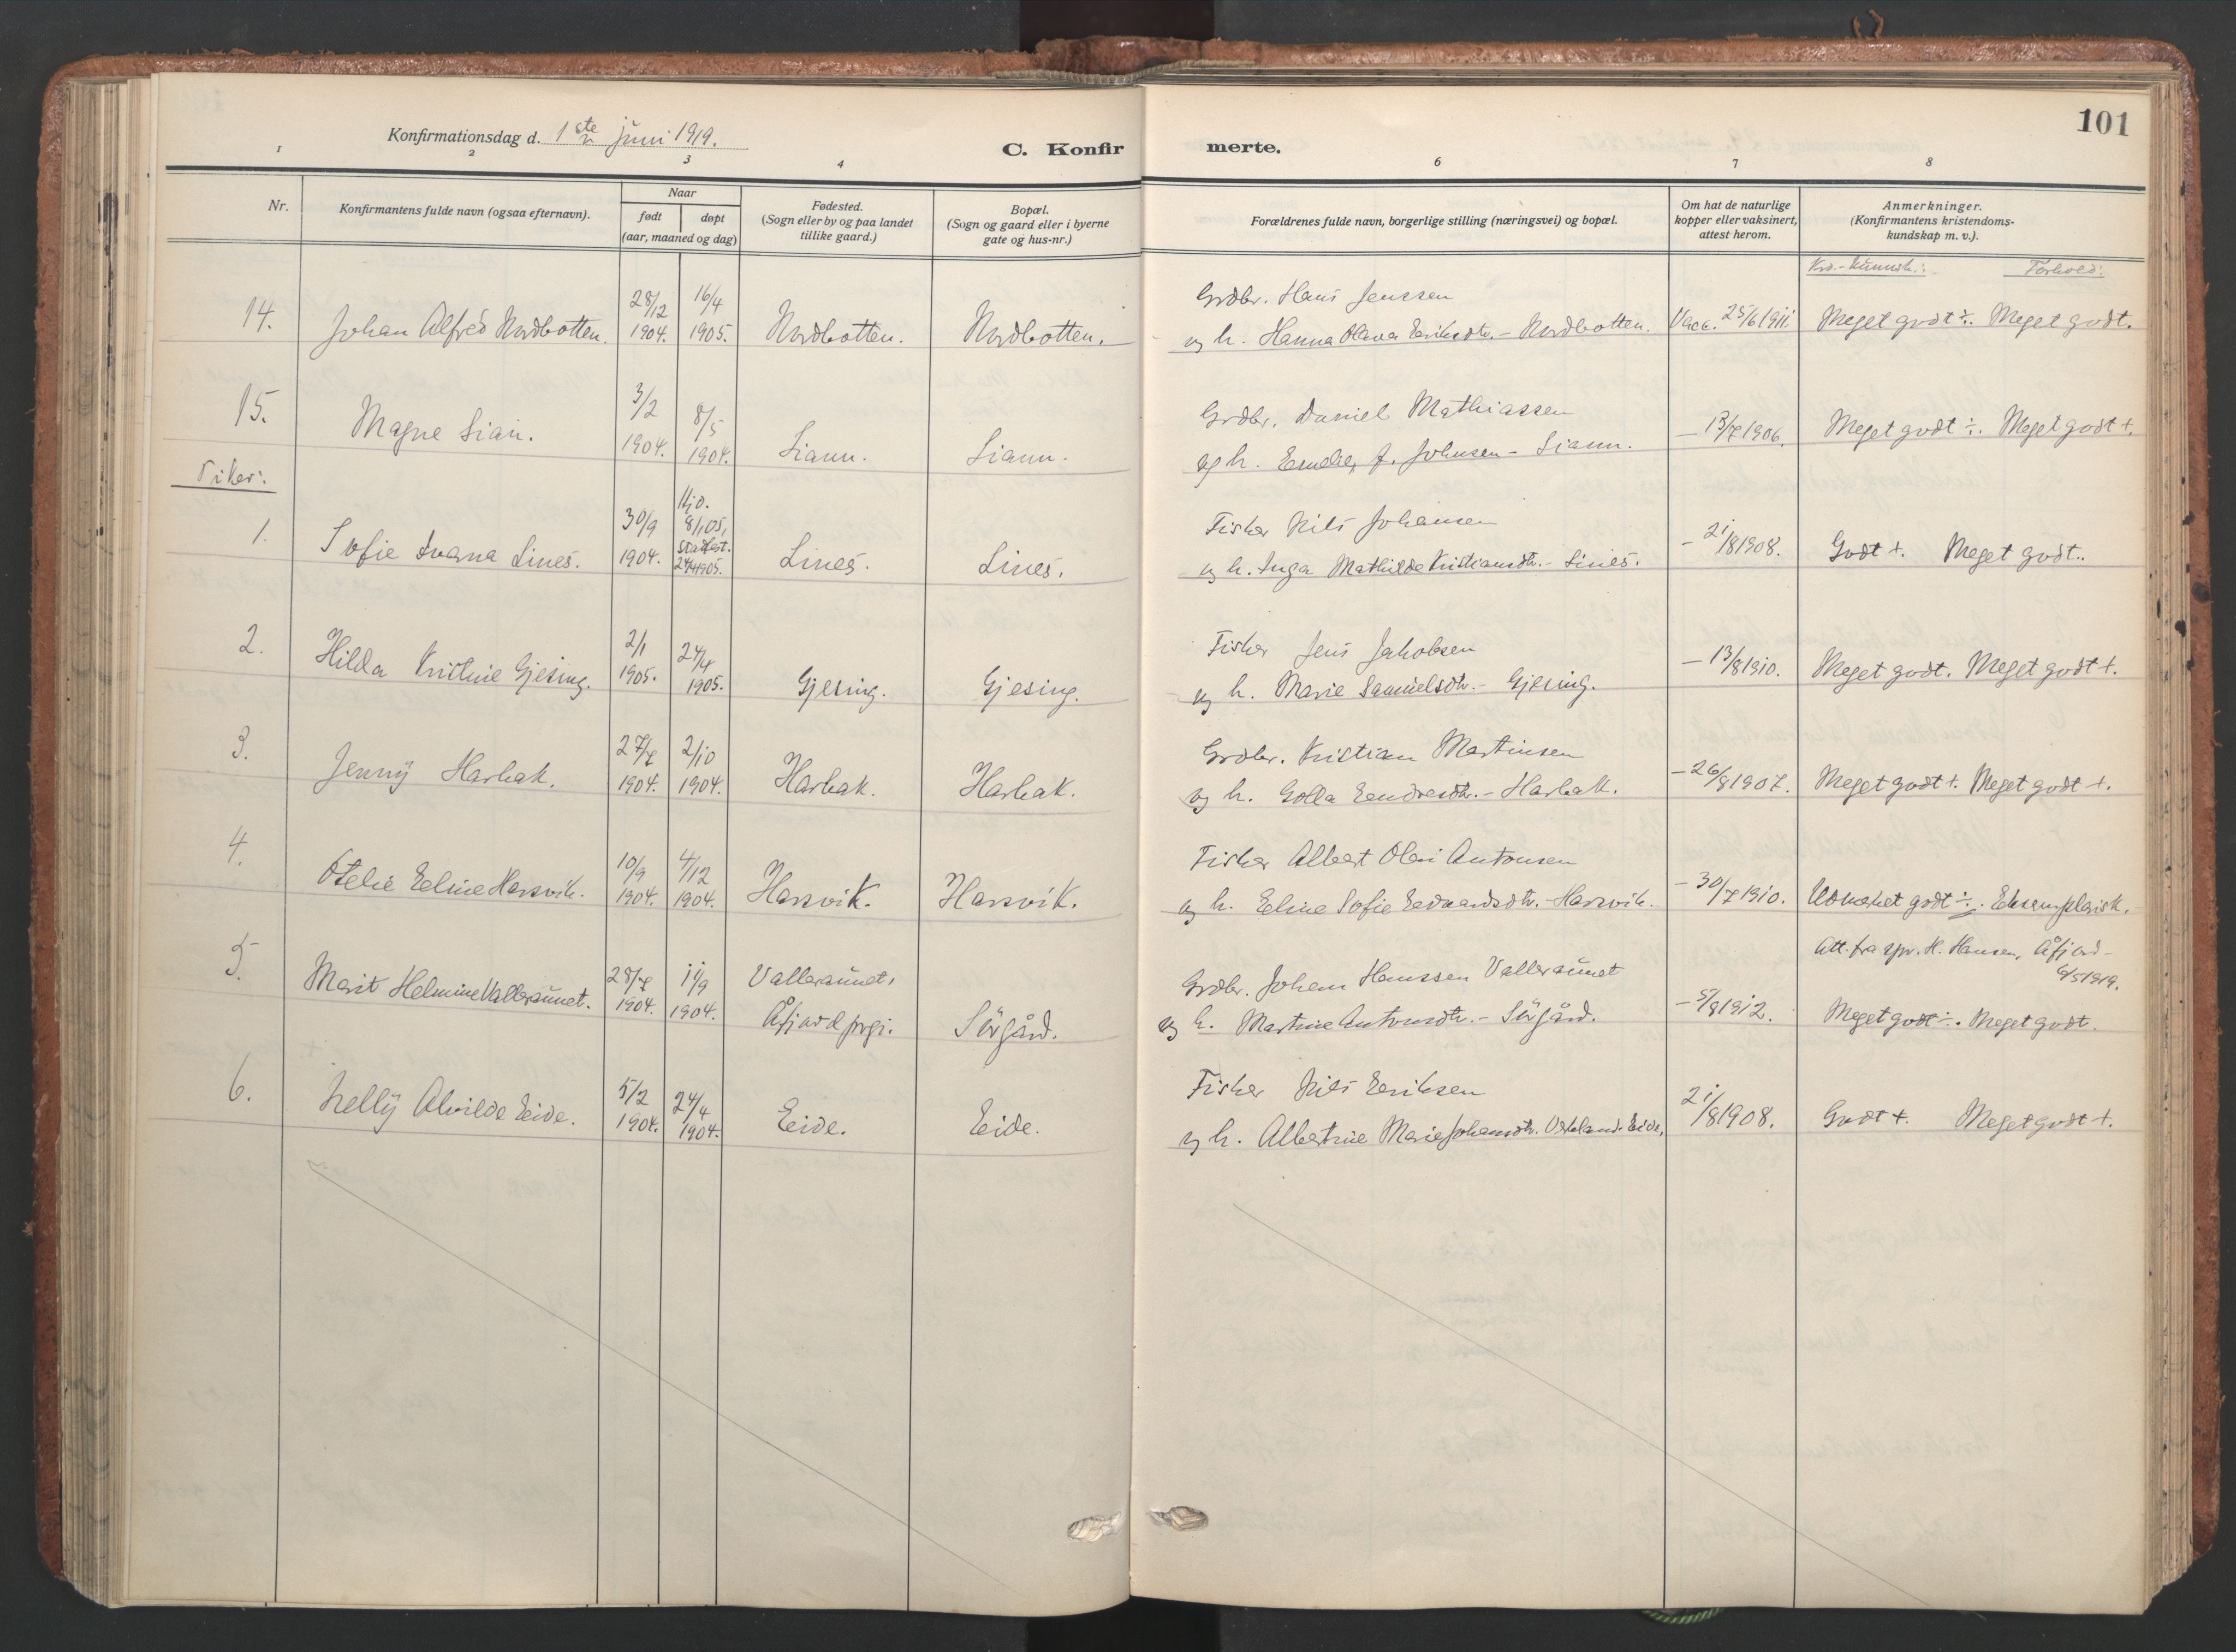 101
Konfirmationsdag d. 1ste juni 1919.
C. Konfir merte.
1 2 3 4 6 7 8
Nr.
Konfirmantens fulde navn (ogsaa efternavn).
Naar
født døpt
(aar, maaned og dag)
Fødested.
(Sogn eller by og paa landet
tillike gaard.)
Bopæl.
(Sogn og gaard eller i byerne
gate og hus-nr.)
Forældrenes fulde navn, borgerlige stilling (næringsvei) og bopæl.
Om hat de naturlige
kopper eller vaksinert,
attest herom.
Anmerkninger.
(Konfirmantens kristendoms-
kundskap m. v.).
Krd.-kunnsk.: Forhold:
14. Johan Alfred Nordbotten. 28/12 1904. 16/4 1905. Nordbotten. Nordbotten.
Grdbr. Hans Jenssen
og h. Hanna Olava Eriksdtr. - Nordbotten. Vacc. 25/6 1911. Meget godt ÷. Meget godt.
15. Magne Lian. 3/2 1904. 8/5 1904. Liann. Liann.
Grdbr. Daniel Mathiassen
og h. Emelie J. Johnsen - Liann. — 13/7 1906. Meget godt ÷. Meget godt +.
Piker:
1. Sofie Ivana Lines. 30/9 1904. Hjd. 8/1 05, stadfest. 24/4 1905. Lines. Lines.
Fisker Nils Johansen
og h. Inga Mathilde Kristiansdtr. - Lines. - 21/8 1908. Godt +. Meget godt.
2. Hilda Kristine Gjesing. 2/1 1905. 24/4 1905. Gjesing. Gjesing.
Fisker Jens Jakobsen
og h. Marie Samuelsdtr. - Gjesing. — 13/8 1910. Meget godt. Meget godt +.
3. Jenny Harbak. 27/7 1904. 2/10 1904. Harbak. Harbak.
Grdbr. Kristian Martinsen
og h. Golla Eendresdtr. - Harbak. - 26/8 1907. Meget godt +. Meget godt +.
4. Otelie Eeline Harsvik. 10/9 1904. 4/12 1904. Harsvik. Harsvik.
Fisker Albert Olai Antonsen
og h. Eeline Sofie Eedvardsdtr. - Harsvik. - 30/7 1910. Udmerket godt ÷. Eksemplarisk.
5. Marit Helmine Valleraunet. 28/7 1904. 11/9 1904. Valleraunet, Åfjord prgj. Sörgård.
Grdbr. Johan Hanssen Valleraunet
og h. Martine Antonsdtr. - Sörgård. - 5/8 1912.
Att. fra spr. H. Hansen, Åfjord - 6/5 1919.
Meget godt ÷. Meget godt.
6. Nelly Alvilde Eide. 5/2 1904. 24/4 1904. Eide. Eide.
Fisker Nils Eeriksen
og h. Albertine Marie Johansdtr. Eide. 21/8 1908. Godt +. Meget godt +.